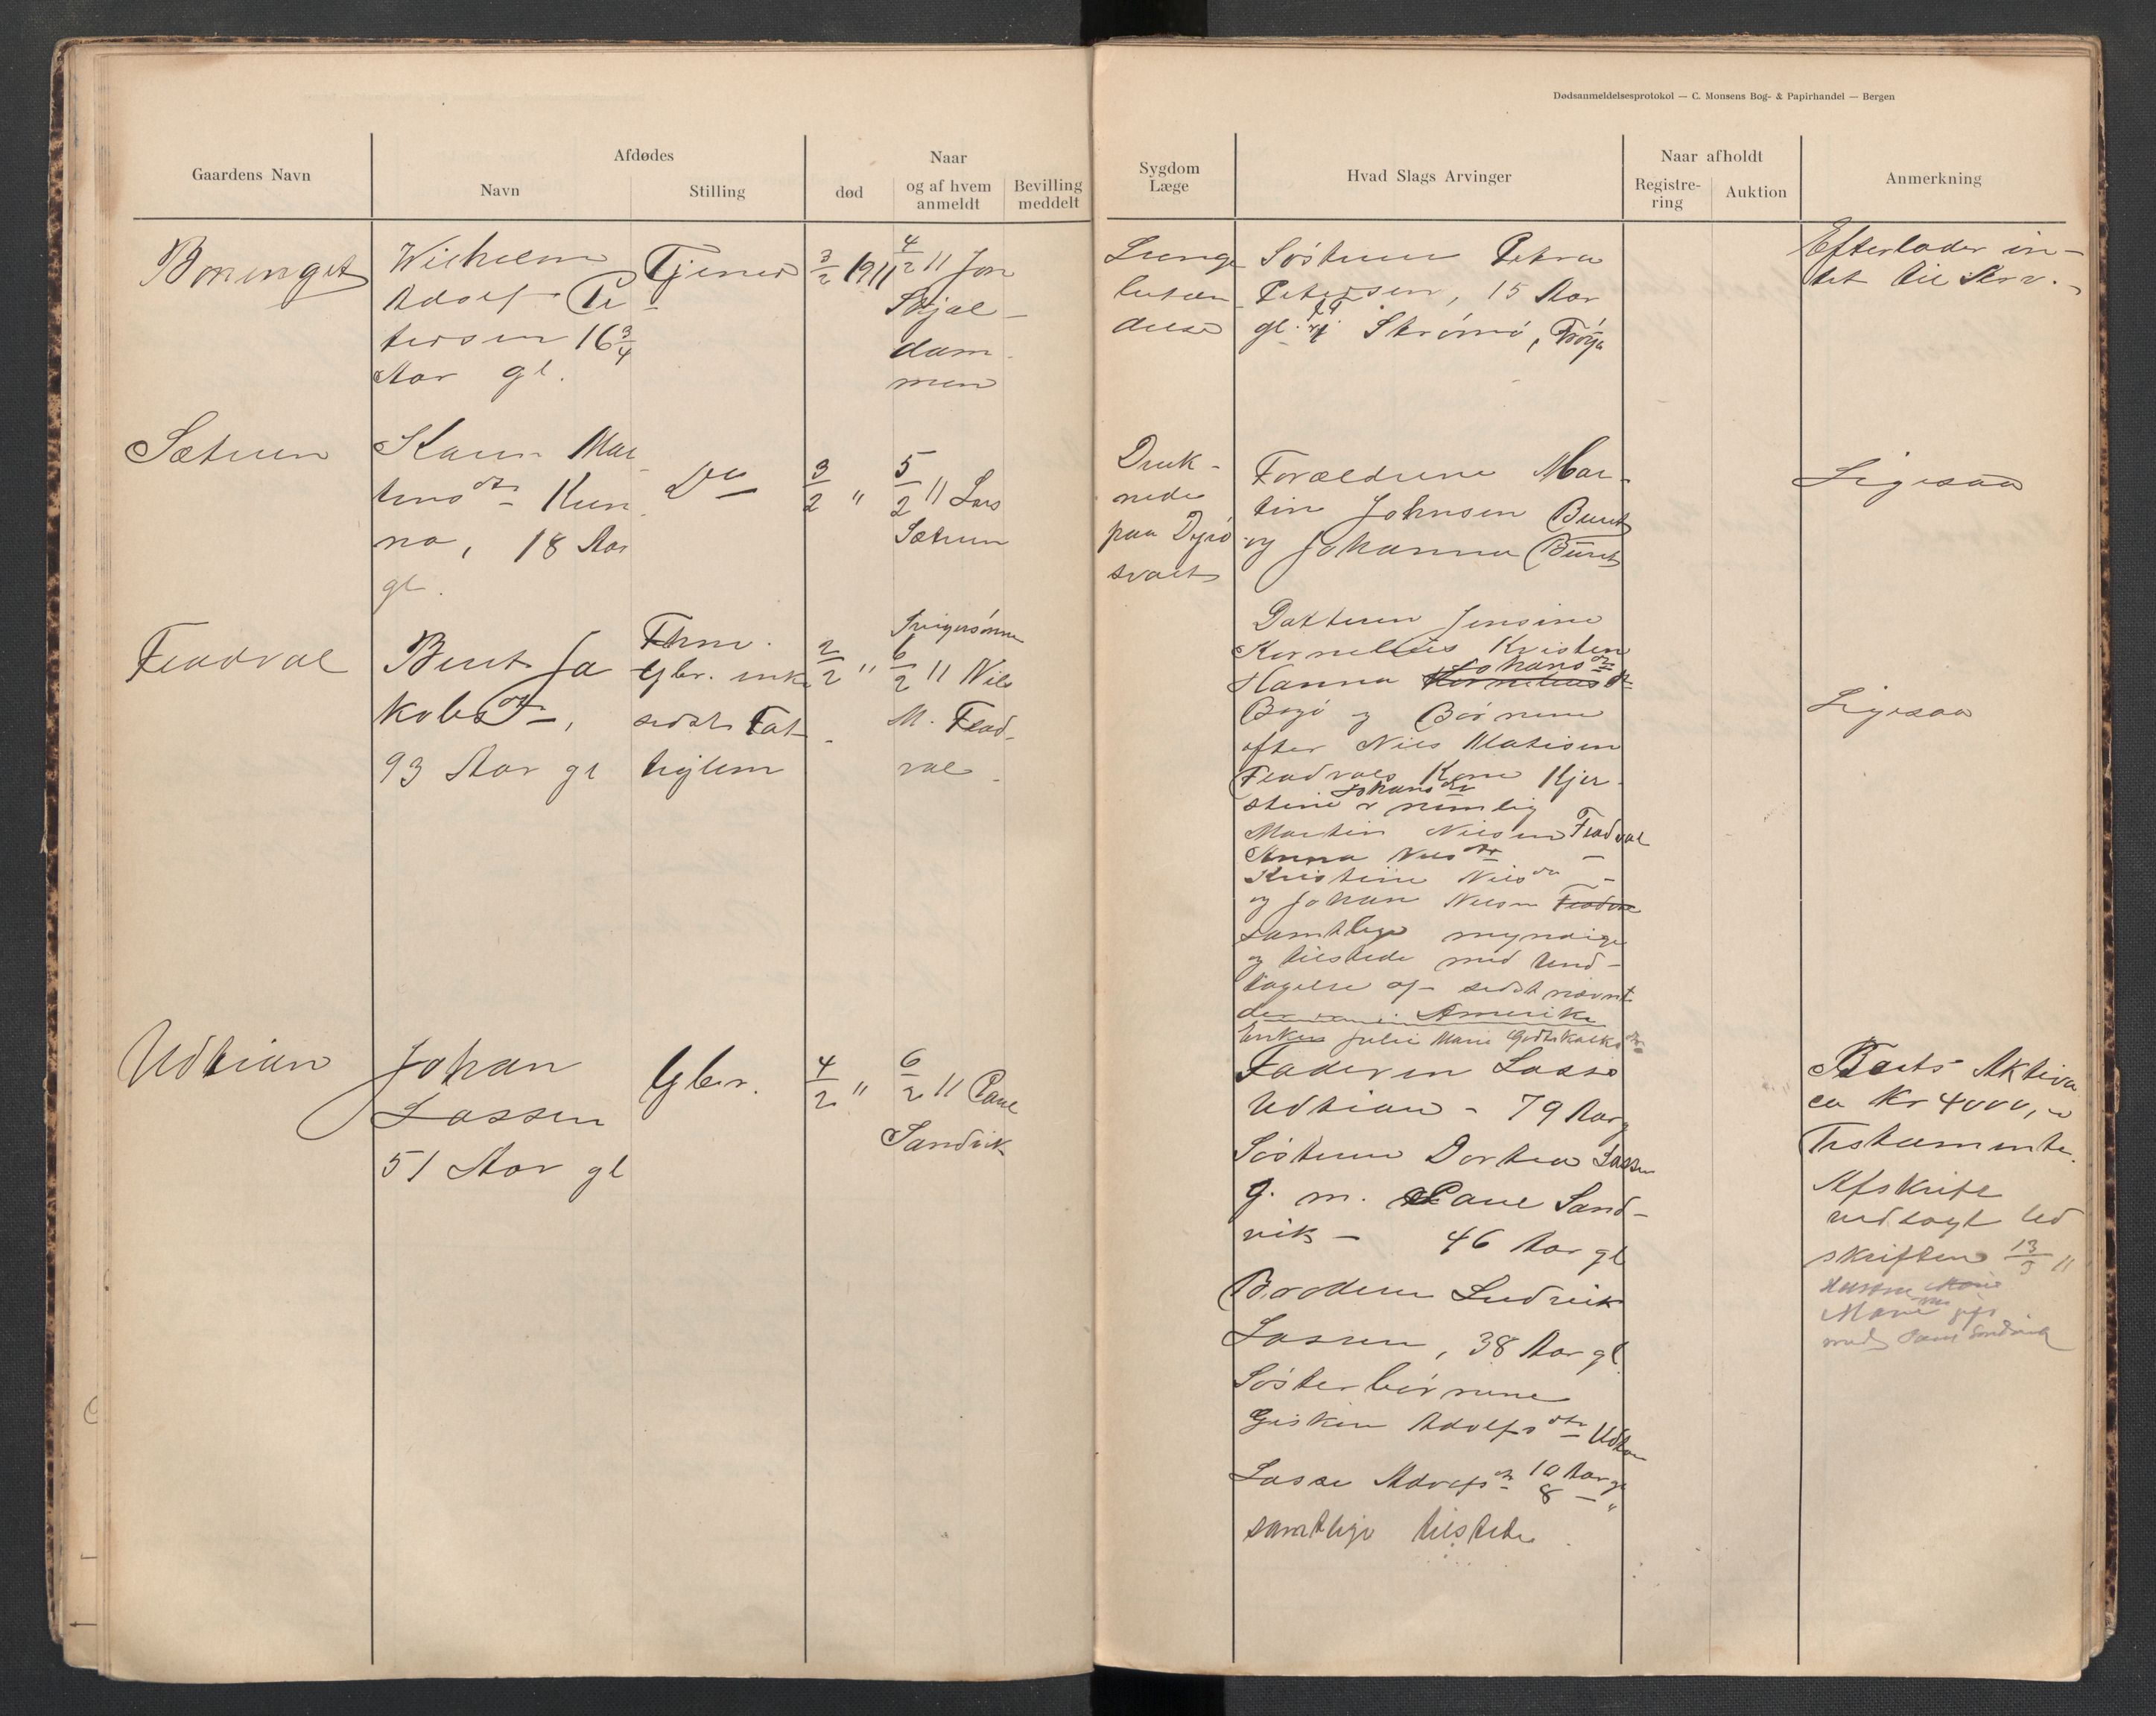 Dødsanmeldelsesprotokol — C. Monsens Bog- & Papirhandel — Bergen
Gaardens Navn
Afdødes
Navn
Stilling
Naar
død
og af hvem anmeldt
Bevilling meddelt
Sygdom Læge
Hvad Slags Arvinger
Naar afholdt
Registre-ring
Auktion
Anmerkning
Borvinget
Wilhelm
Adolf Pe
tersen 16 3/4
Aar gl.
Tjener
3/2 1911
4/2 11 Jon
Skjæl-
dam-
men
Lunge
betæn
delse
Søsteren Petra
Petersen, 15 Aar
gl. Strømø, Frøya
Efterlader in-
tet til Arv.
Sætrum
Karen Mar
tinsdtr Kun
na, 18 Aar
gl.
Do
3/2 "
5/2 11 Lars
Sætrum
Druk-
nede
paa Dyrø
svaet
Forældrene Mar-
tin Johnsen Buret
og Johanna Buret
Ligesaa
Fladval
Berit Ja
kobsdtr,
93 Aar gl
Fhv.
Gbr. enke
sidst Fat
tiglem
2/2 "
Svigersønn
6/2 11 Nils
M. Flad-
val
Datteren Jensine
Kornelius Kristen
Hanna Kornelius Johansdtr
Bogø og Børnene
efter Nils Matisen
Fladvals Kone Kjer-
stine Johansdtr nemlig
Martin Nilsen Fladval
Anna Nilsdtr —
Kristine Nilsdtr —
og Johan Nilsen Fladval
samtlige myndige
og tilstede med Und-
tagelse af sidstnævnt
der i Amerika
Ligesaa
Udtian
Johan
Lassen
51 Aar gl
Gbr.
4/2 "
6/2 11 Paul
Sandvik
Enken Julie Marie Godtskalksdtr
Faderen Lasse
Udtian - 79 Aar
Søsteren Dortea Lassen
g. m. Paul Sand-
vik - 46 Aar gl
Broderen Ludvik
Lassen, 38 Aar gl
Søsterbørnene
Gjskin Adolfsdtr Udtian
10 Aar gl
Lasse Adolfs 8 — "
samtlige tilstede.
Boets Aktiva
ca Kr 4000,-
Testamente.
Afskrift
udtagt Ud
skriften 13/3 11
Marie
med Paul Sandvik